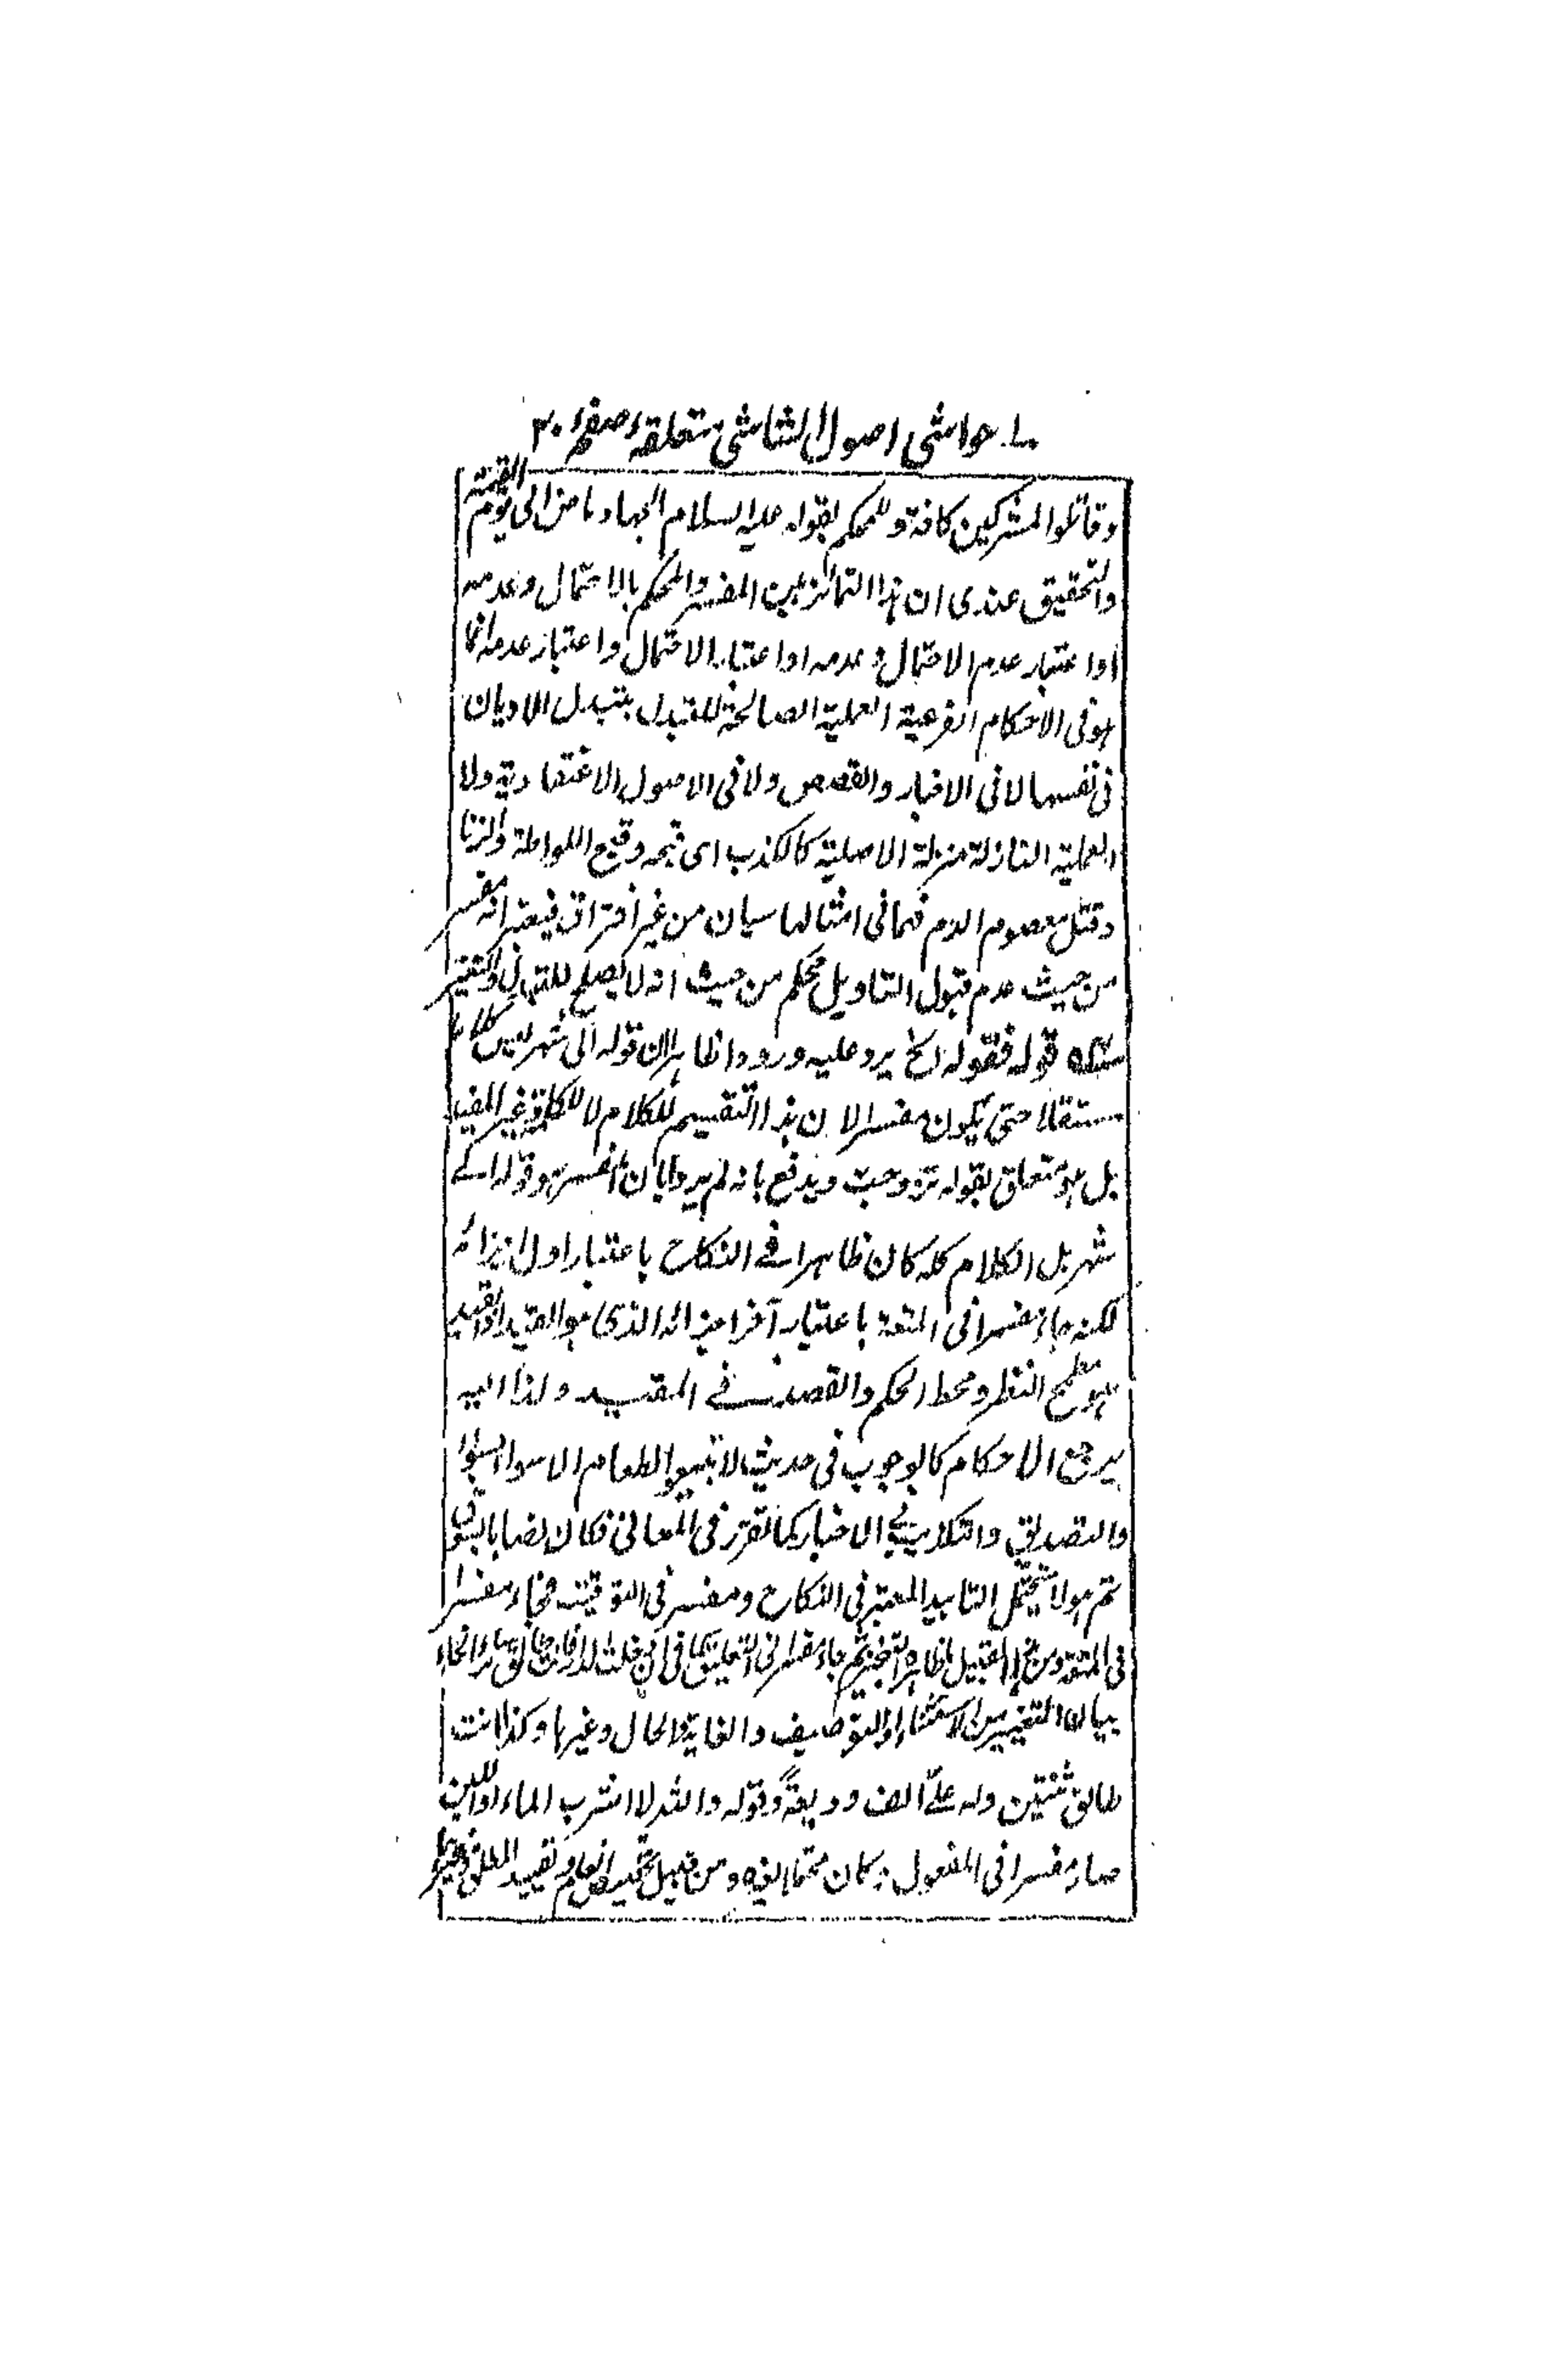 حواشی اصول الشاشی متعلقہ صفحہ ۳۰
وقاتلوا المشركين كافة وللمحكم بقوله عليه السلام الجهاد ماض الى يوم القيمة
والتحقيق عندى ان هذا التمائز بين المفسر والمحكم بالاحتمال وعدمه
او اعتبار عدم الاحتمال وعدمه او اعتبار الاحتمال واعتبار عدمه انما
هو فى الاحكام الفرعية العملية الصالحة للتبدل بتبدل الاديان
فى نفسها لا فى الاخبار والقصص ولا فى الاصول الاعتقادية ولا
العملية النازلة منزلة الاصلية كالكذب اى قبحه وقبح اللواطة والزنا
وقتل معصوم الدم فهما فى امثالها سيان من غير افتراق فيعتبر انه مفسر
من حيث عدم قبول التاويل محكم من حيث انه لا يصلح للتبديل والتغير
قوله فقوله الخ يرد عليه ورودا ظاهرا ان قوله الى شهر ليس كلاما
مستقلا حتى يكون مفسرا لان هذا التقسيم للكلام لا للكلمة غير المفيد
بل هو متعلق بقوله تزوجت ويدفع بانه لم يرد ان المفسر هو قوله الے
شهر بل الكلام كله كان ظاهرا فے النكاح باعتبار اول اجزائه
لكنه جاء مفسرا فى المتعة باعتبار آخر اجزائه الذى هو القيد اذ القيد
هو مطمح النظر ومحط الحكم والقصد فے المقيد ولذا اليه
يرجع الاحكام كالوجوب فى حديث لا تبيعوا الطعام الا سواء بسواء
والتصديق والتكذيب فى الاخبار كما تقرر فى المعانى فكان نصا بالسوق
ثم هو لا يحتمل التابيد المعتبر فى النكاح ومفسر فى التوقيت فجاء مفسرا
فى المتعة ومن هذا القبيل ظاهر التنجيز ثم جاء مفسرا فى التعليق كما فى ان دخلت الدار فانت طالق وسائر انحاء
بيان التغيير من الاستثناء والتوصيف والغاية والحال وغيرها وكذا انت
طالق ثنتين وله علىّ الف وديعةً وقوله والله لا اشرب الماء او اللبن
صار مفسرا فى المفعول وكان محتملا لغيره ومن قبيل تخصيص العام وتقييد المطلق وغيرها